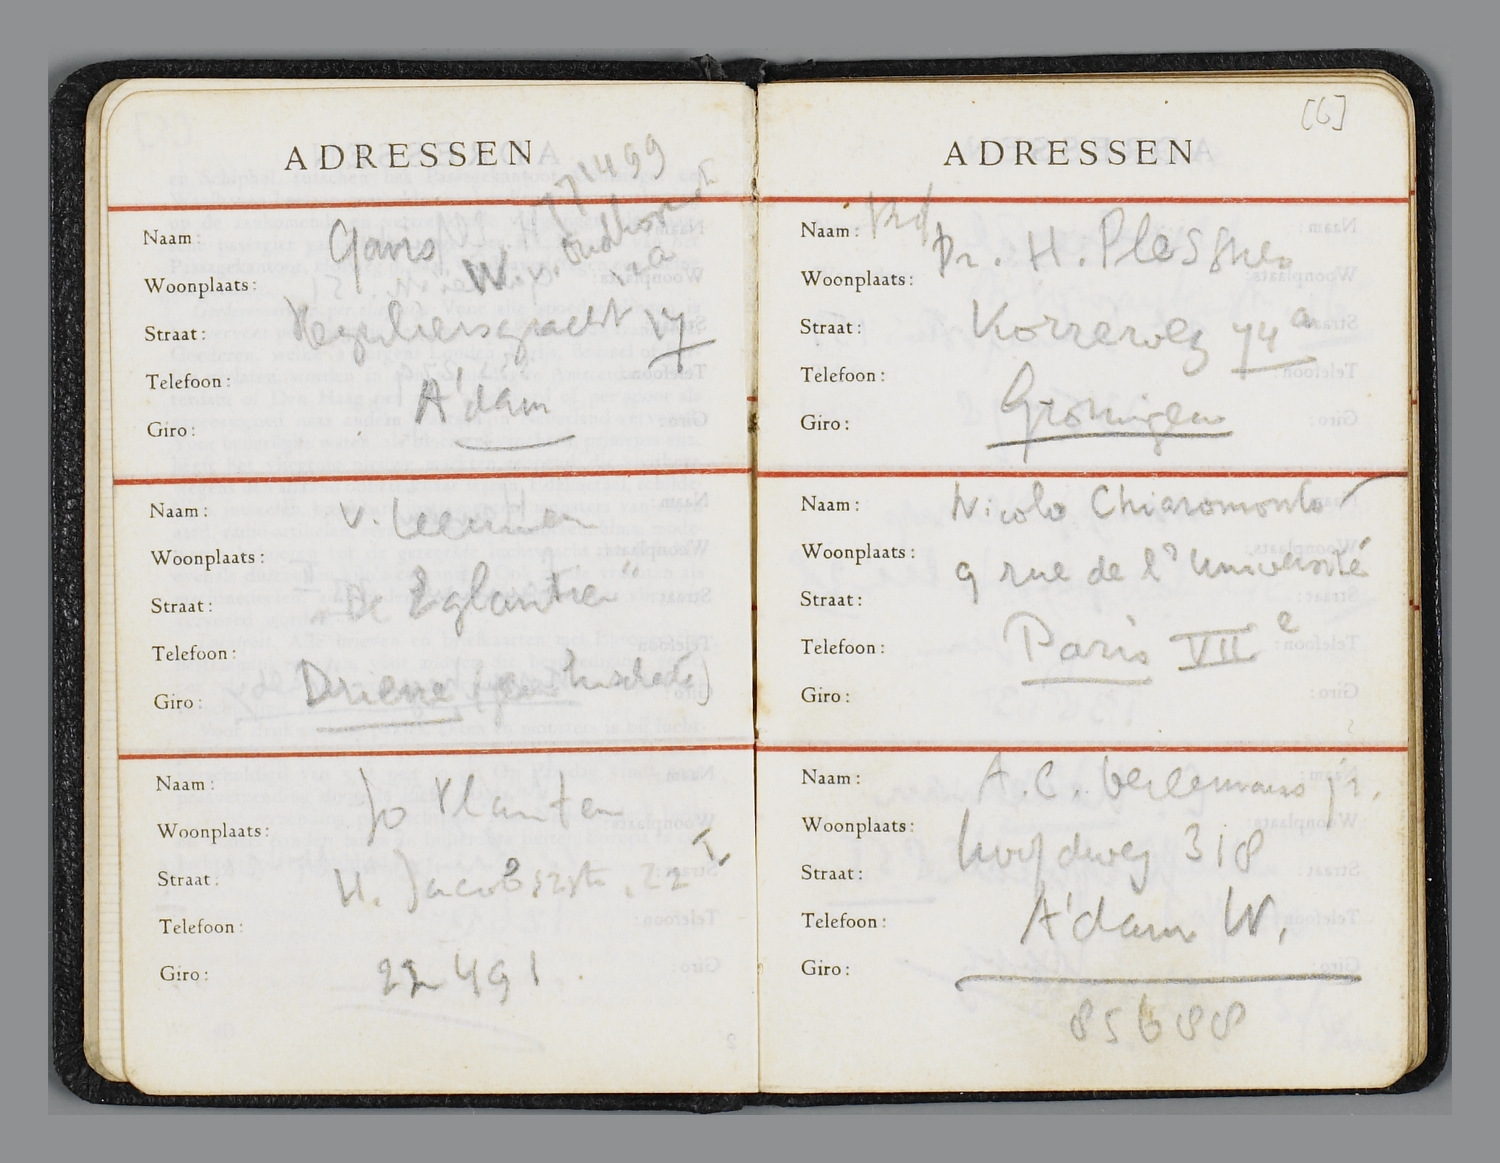 ADRESSEN
771499
Naam: Gans
W. v. Oudhorst
12a
Woonplaats:
Straat: Reguliersgracht 17
Telefoon:
A'dam
Giro:
Naam: v. Leeuwen
Woonplaats:
Straat: „De Eglantier"
Telefoon:
Giro: Driene (Enschede)
Naam: Jo Planten
Woonplaats:
Straat: H. Jacobszstr. 22 I
Telefoon:
Giro: 22491.
[6]
ADRESSEN
Naam: Prof. Dr. H. Plessner
Woonplaats:
Straat: Korreweg 74a
Telefoon:
Giro: Groningen
Naam: Nicola Chiaromonte
Woonplaats: 9 rue de l'Université
Straat:
Telefoon: Paris VIIe
Giro:
Naam: A.C. Oerlemans jr.
Woonplaats:
Hoofdweg 318
Straat:
Telefoon: A'dam W.
Giro:
85688